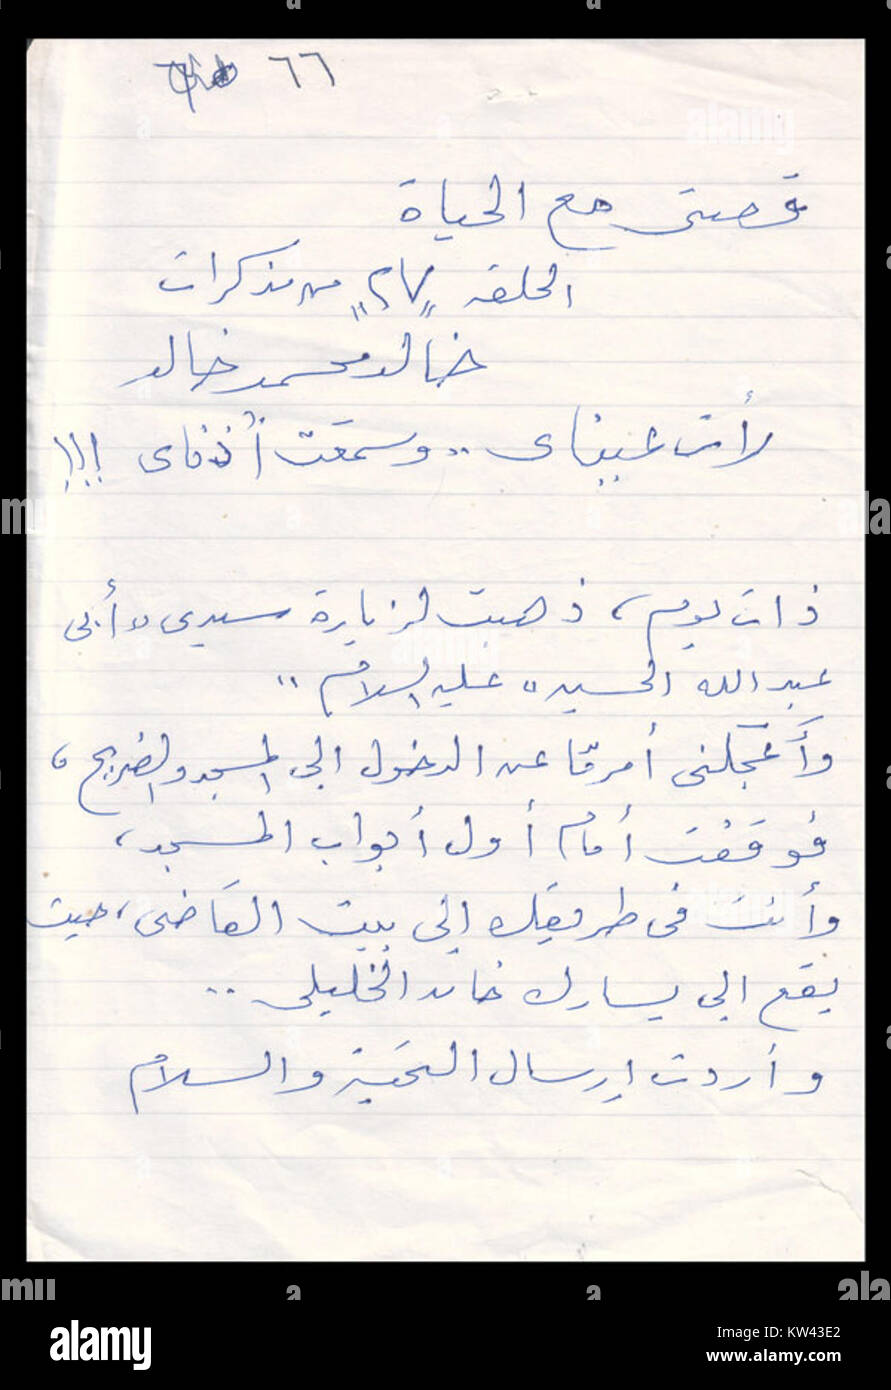 ٦٦
قصتى مع الحياة
الحلقه "٢٧" من مذكرات
خالد محمد خالد
رأت عيناى .. وسمعَتْ أُذناى !!!
ذات يوم، ذهبت لزيارة سيدى "أبى
عبد الله الحسين" عليه السلام ..
وأَعْجَلنى أمر مّا عن الدخول إلى المسجد والضريح،
فوقَفْت أمام أول أبواب المسجد،
وأنت فى طريقك إلى بيت القاضى، حيث
يقع إلى يسارك خان الخليلى ..
وأردت إرسال التحية والسلام
alamy
alamy
Image ID: KW43E2
www.alamy.com